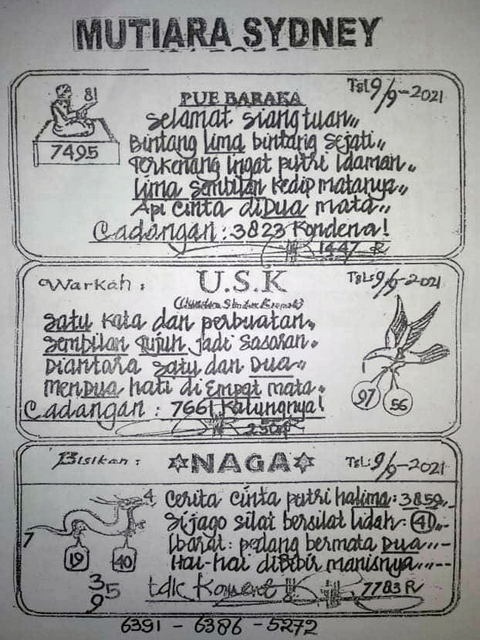 MUTIARA SYDNEY
PUE BARAKA
Tgl 9/9-2021
81
7495
Selamat siang tuan,,
Bintang lima bintang sejati..
Terkenang ingat putri idaman..
Lima Sembilan kedip matanya,,
Api cinta diDua mata..
Cadangan: 3823 Kondena!
1447 R
Warkah:
U.S.K
TgL: 9/9-2021
Satu Kata dan perbuatan..
Sembilan Tujuh jadi Sasaran.
Diantara Satu dan Dua..
MenDua hati di Empat mata..
Cadangan: 7661 Kalungnya!
97
56
Bisikan:
NAGA
TgL: 9/9-2021
4
7
19
40
35
9
Cerita Cinta putri halima: 3859..-
Sijago silat bersilat lidah: 41..-
Ibarat: pedang bermata Dua..--
Hal-hal dibibir manisnya..--
tdk
7783 R
6391 - 6386 - 5272